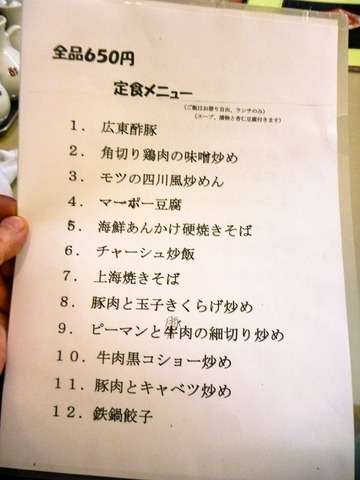 全品650円
定食メニュー
(ご飯はお替り自由、ランチのみ)
(スープ、漬物と杏仁豆腐付きます)
1. 広東酢豚
2. 角切り鶏肉の味噌炒め
3. モツの四川風炒めん
4. マーボー豆腐
5. 海鮮あんかけ硬焼きそば
6. チャーシュ炒飯
7. 上海焼きそば
8. 豚肉と玉子きくらげ炒め
豚
9. ピーマンと牛肉の細切り炒め
10. 牛肉黒コショー炒め
11. 豚肉とキャベツ炒め
12. 鉄鍋餃子